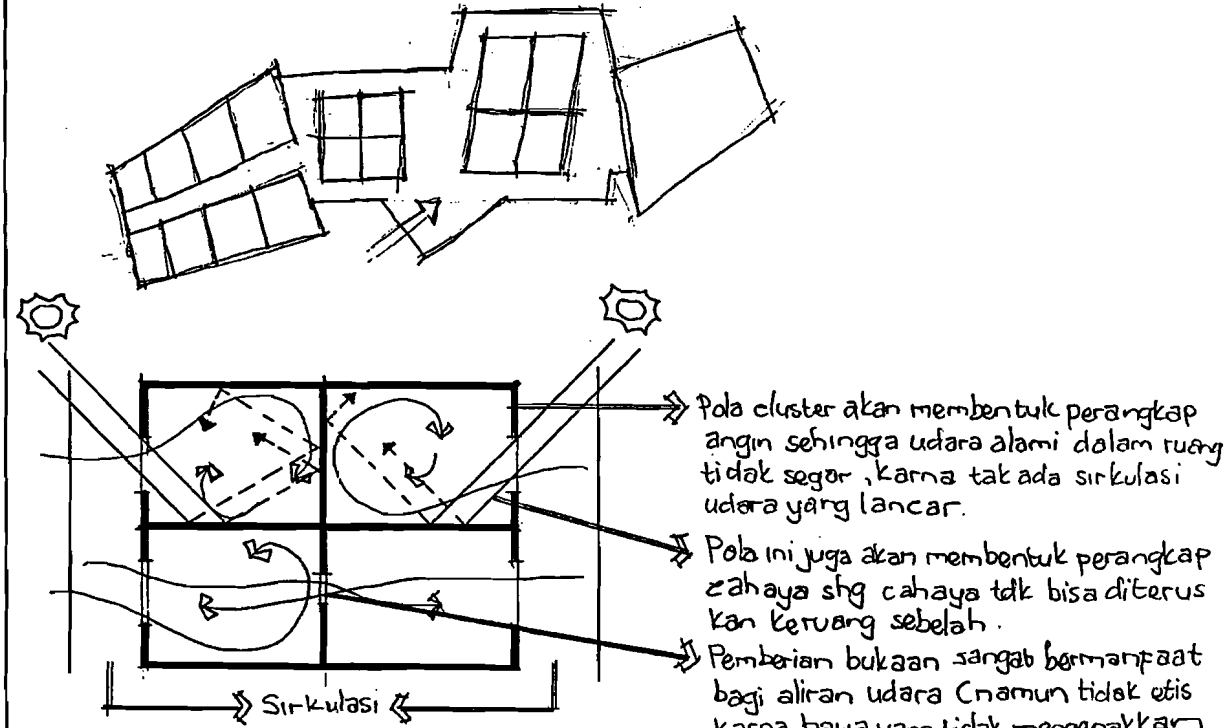 Pola cluster akan membentuk perangkap
angin sehingga udara alami dalam ruang
tidak segar, karna tak ada sirkulasi
udara yang lancar.
Pola ini juga akan membentuk perangkap
cahaya shg cahaya tdk bisa diterus
kan keruang sebelah.
Pemberian bukaan sangat bermanfaat
bagi aliran udara (namun tidak etis
karna baua yang tidak mengenakkan
Sirkulasi